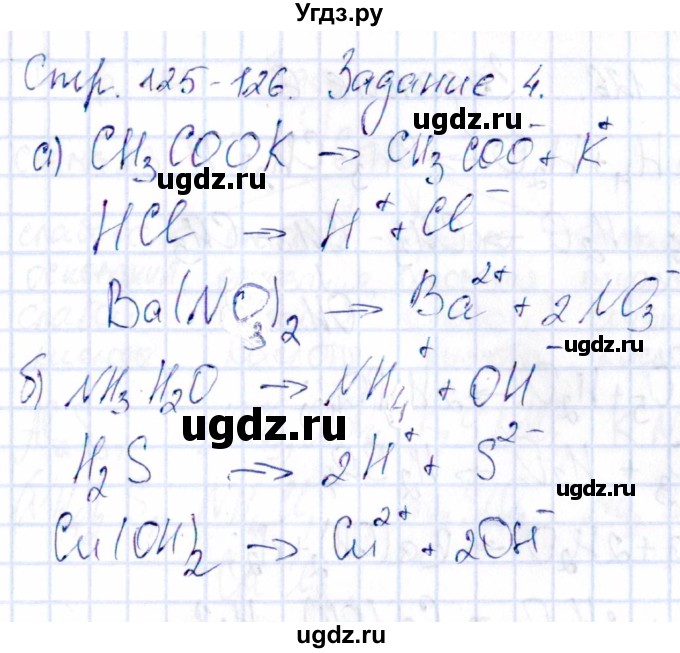 Угдз.ру
Стр. 125-126. Задание 4.
ugdz.ru
а) CH₃COOK → CH₃COO⁻ + K⁺
ugdz.ru
HCl → H⁺ + Cl⁻
Ba(NO₃)₂ → Ba²⁺ + 2NO₃⁻
ugdz.ru
б) NH₃·H₂O → NH₄⁺ + OH⁻
ugdz.ru
H₂S → 2H⁺ + S²⁻
ugdz.ru
Cu(OH)₂ → Cu²⁺ + 2OH⁻
ugdz.ru
ugdz.ru